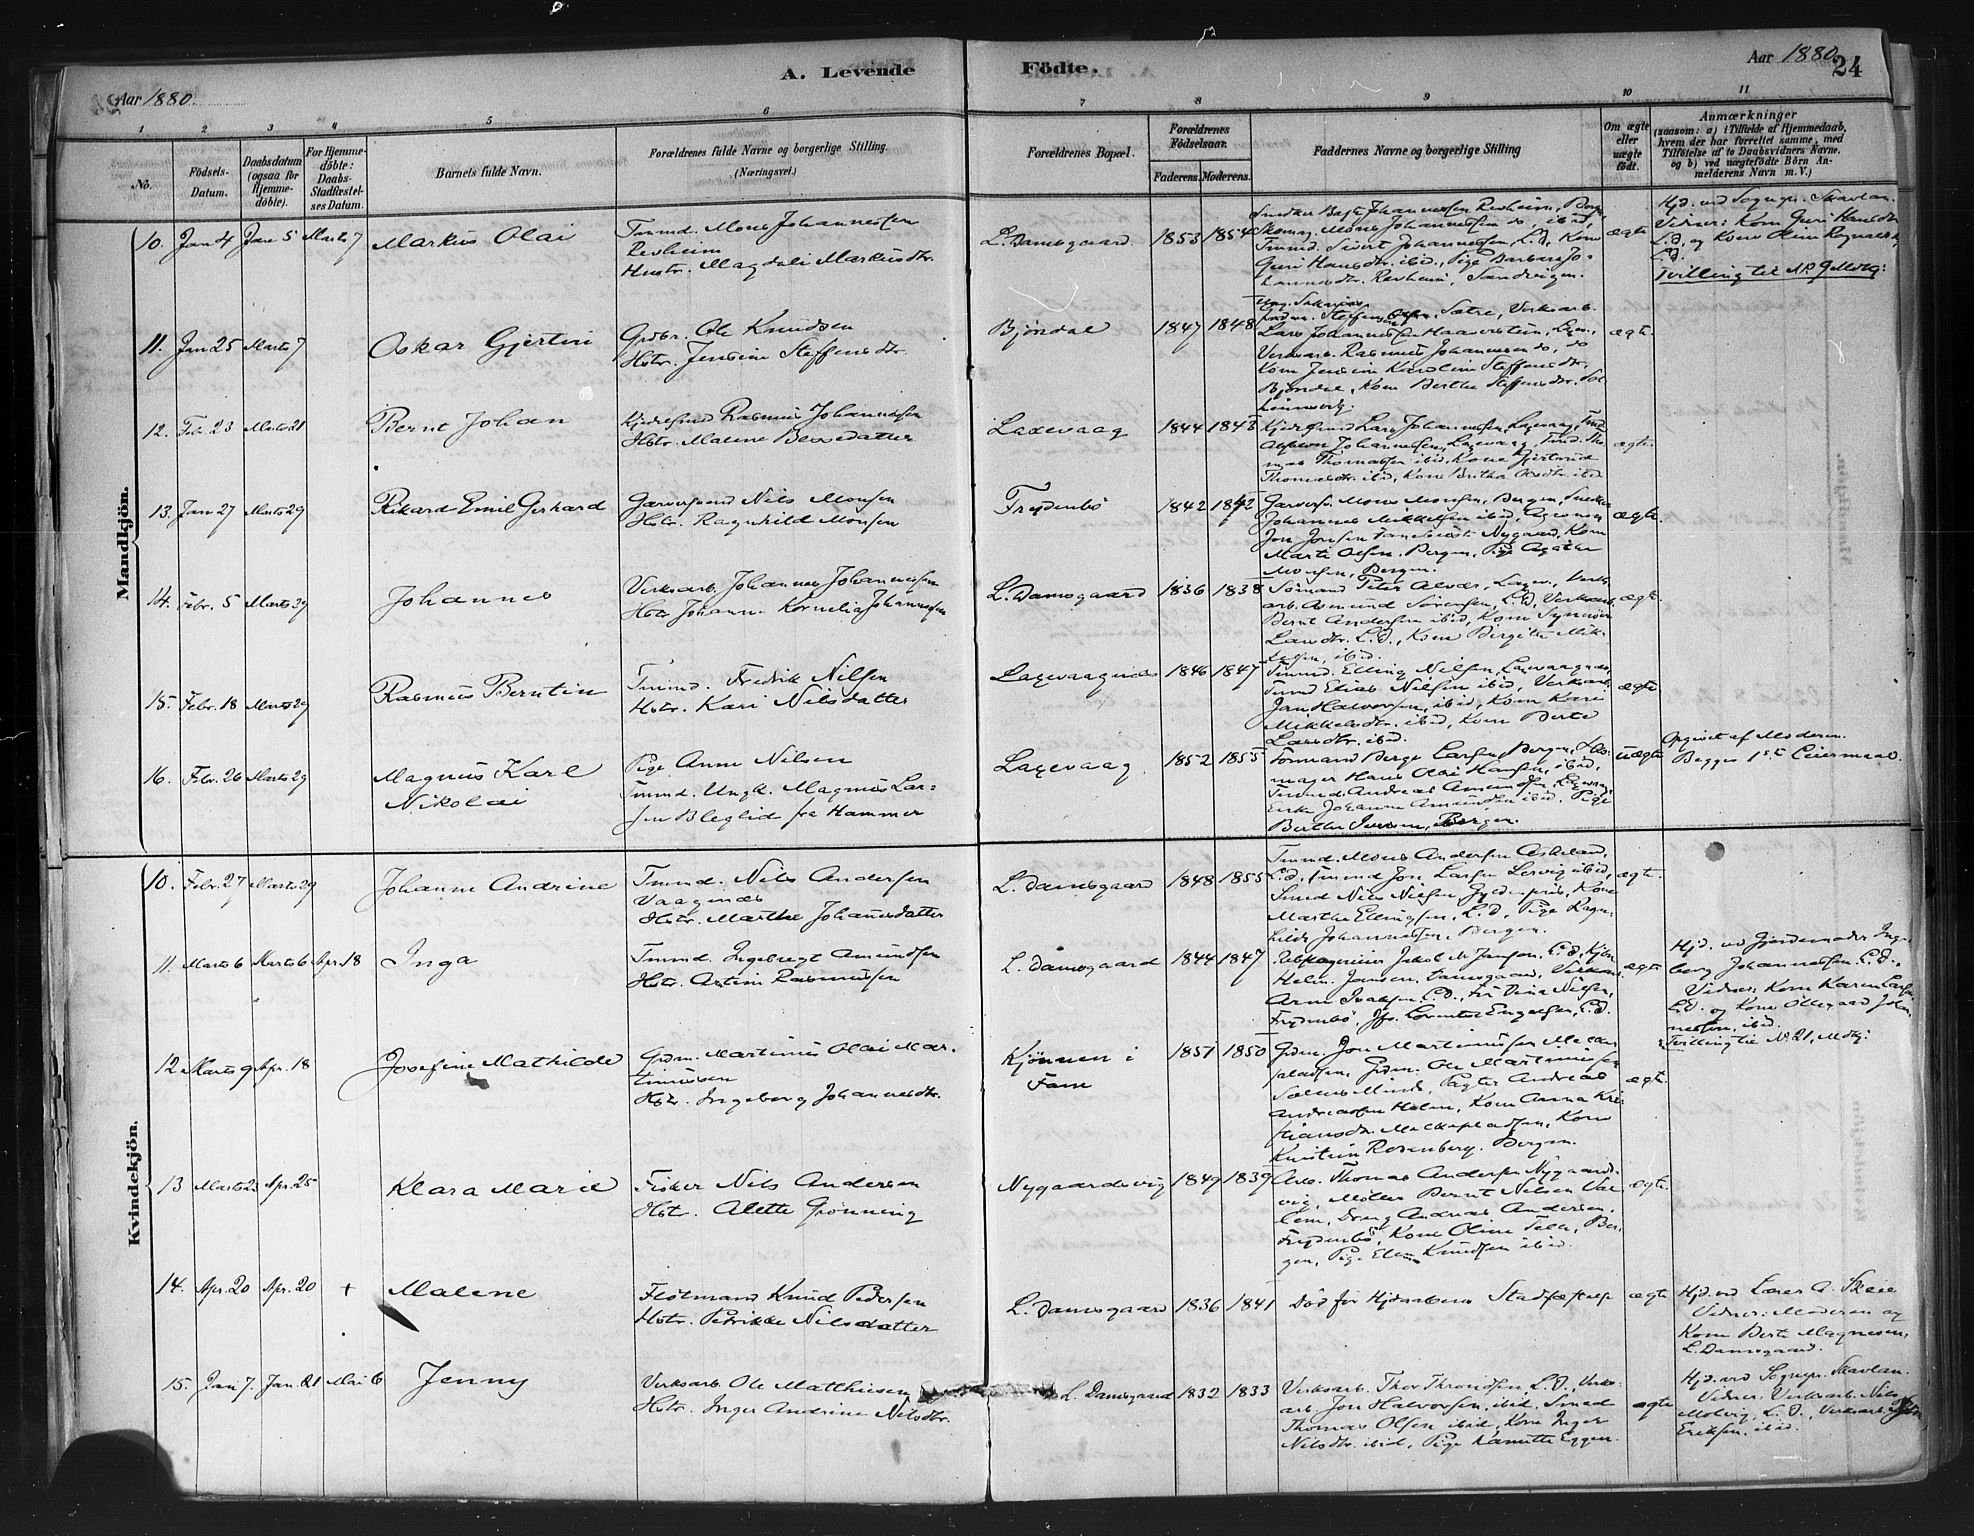 A. Levende Födte.
Aar 1880.
Aar 1880
24
1 2 3 4 5 6 7 8 9 10 11
No.
Födsels-Datum.
Daabsdatum (ogsaa for Hjemme-döbte).
For Hjemme-döbte: Daabs-Stadfæstel-ses Datum.
Barnets fulde Navn.
Forældrenes fulde Navne og borgerlige Stilling (Næringsvei.)
Forældrenes Bopæl.
Forældrenes Födselsaar.
Faderens. Moderens.
Faddernes Navne og borgerlige Stilling
Om ægte eller uægte födt.
Anmærkninger
(saasom: a) i Tilfælde af Hjemmedaab, hvem der har forrettet samme, med Tilföielse af to Daabsvidners Navne. og b) ved uægtefödte Börn An-melderens Navn m. V.)
Mandkjön.
10. Jan 4 Jan 5 Marts 7 Markus Olai
Tmmd. Mons Johannessen
Revheim
Hustr. Magdali Markusdtr.
L. Damsgaard. 1853 1854
ægte
Hjd. ved Sognpr. Skavlan.
Vidner: Kone Guri Hansdtr
L.D. og Kone
L.D.
Tvilling til No 9 Mdkj:
11. Jan 25 Marts 7 Oskar Gjertin
Grdbr. Ole Knudsen
Hstr. Jensine Steffensdtr.
Bjöndal 1847 1848
Lars Johannessen
Verksarb. Rasmus Johannessen do, do
Kone Jensine Karoline Steffensdtr,
Bjöndal, Kone Berthe Steffensdtr.
ægte.
12. Febr. 23 Marts 21 Bernt Johan
Rasmus Johannessen
Hstr. Malene Beersdatter
Laxevaag 1844 1843
Lars Johannessen, Laxevaag,
Johannessen, Laxevaag, Tmd. Tho-
mas Thomassen ibid, Kone Gjertrud
Thomasdtr. ibid, Kone Bertha Olsdtr ibid
ægte.
13. Jan 27 Marts 29 Rikard Emil Gerhard
Garversvend Nils Monsen
Hstr. Ragnhild Monsen
Frydenbö 1842 1842
Garversv. Mons Monsen, Bergen,
Johannes Mikkelsen ibid,
Nygaard, Kone
Marte Olsen, Bergen, Pige Agathe
Monsen, Bergen.
ægte.
14. Febr. 5 Marts 29 Johannes
Verksarb. Johannes Johannessen
Hstr. Johann. Kornelia Johannessen
L. Damsgaard 1836 1838
Sömand Peter Alvær, Laxev., Verks-
arb. Asmund Sörensen, L.D. Verksarb.
Bernt Andersen ibid, Kone Synnöve
Larsdtr. L.D., Kone Bergitte Mik-
kelsen, ibid.
ægte.
15. Febr. 18 Marts 29 Rasmus Berntin
Tmmd. Fredrik Nilsen
Hstr. Kari Nilsdatter
Laxevaagnæs 1846 1847
Tmmd. Elling Nilsen, Laxevaagnæs,
Tmmd Elias Nilsen ibid, Verksarb.
Jon Halvorsen, ibid, Kone Kari
Mikkelsdtr. ibid, Kone Berte
Larsdtr. ibid.
ægte
16. Febr. 26 Marts 29 Magnus Karl
Nikolai
Pige Anne Nilsen
Tmmd. Ungk. Magnus Lar-
sen Bleglid fra Hammer
Laxevaag 1852 1855
Formand Berge Larsen, Bergen, Sko-
mager Hans Olai Hansen, ibid,
Tmmd. Andreas Amundsen, Laxevaag,
Enke Johanne Amundsen ibid, Pige
Berthe Iversen, Bergen.
uægte
Opgivet af Moderen.
Begges 1ste Leiermaal.
Kvindekjön.
10. Febr. 27 Marts 29 Johanne Andrine
Tmmd. Nils Andersen
Vaagenæs
Hstr. Marthe Johannesdatter
L. Damsgaard 1848 1855
Tmmd. Mons Andersen Askeland,
L.D, Tmmd Jon Larsen Lervig ibid,
Smed Nils Nielsen Gyldenpris, Kone
Marthe Ellingsen, L.D, Pige Ragn-
hilde Johannessen, Bergen.
ægte.
11. Marts 6 Marts 6 Apr. 18 Inga
Tmmd. Ingebregt Amundsen
Hstr. Artine Rasmussen
L. Damsgaard 1844 1847
Jakob M. Jansen, L.D,
Helm. Jansen, Damsgaard, Verksarb.
Arne Isaksen, L.D., Fru Dina Nielsen,
Frydenbö, Jfr. Lorentse Engelsen, L.D.
ægte
Hjd. ved Gjordemoder Inge-
borg Johannessen. L.D.
Vidner: Kone Karen Larsen,
L.D. og Kone Ollegaard Johan-
nessen, ibid.
Tvilling til No. 21, Mdkj:
12 Marts 9 Apr. 18 Josefine Mathilde
Grdm. Martinus Olai Mar-
tinussen
Hstr. Ingeborg Johannesdtr.
Kjönnen i
Fane
1851 1850
Grdm. Jon Martinussen Melke-
pladsen, Grdm. Ole Martinussen
Solens Minde, Pagter Andreas
Andreassen Helm, Kone Anna Kri-
stiansdtr. Melkepladsen, Kone
Kristine Rosenberg. Bergen.
ægte.
13 Marts 23 Apr. 25 Klara Marie
Fisker Nils Andersen
Hstr. Alette Grönning
Nygaardsvig 1849 1839
Arb. Thomas Andersen Nygaards-
vig, Möller Bernt Nilsen Val-
Andreas Andersen,
Frydenbö, Kone Oline Selle, Ber-
gen, Pige Ellen Knudsen ibid.
ægte.
14. Apr. 20 Apr. 20 + Malene
Flötmand Knud Pedersen
Hstr. Petrikke Nilsdatter
L. Damsgaard 1836 1841 Död för Hjdaabens Stadfæstelse ægte
Hjd. ved Lærer A. Skeie
Vidner: Moderen og
Kone Berte Magnesen,
L. Damsgaard.
15. Jan 7. Jan. 21 Mai 6 Jenny
Verksarb. Ole Matthiesen
Hstr. Inger Andrine Nilsdtr.
L. Damsgaard 1832 1833
Verksarb. Thor Throndsen, L.D., Verks-
arb. Jon Halvorsen, ibid. Smed
Thomas Olsen ibid, Kone Inger
Nilsdtr. ibid, Pige Kanutte Eggen.
ægte
Hjd. ved Sognpr. Skavlan.
Vidner: Verksarb. Nils
Molvig, L.D., Verksarb.
Eriksen, ibid.